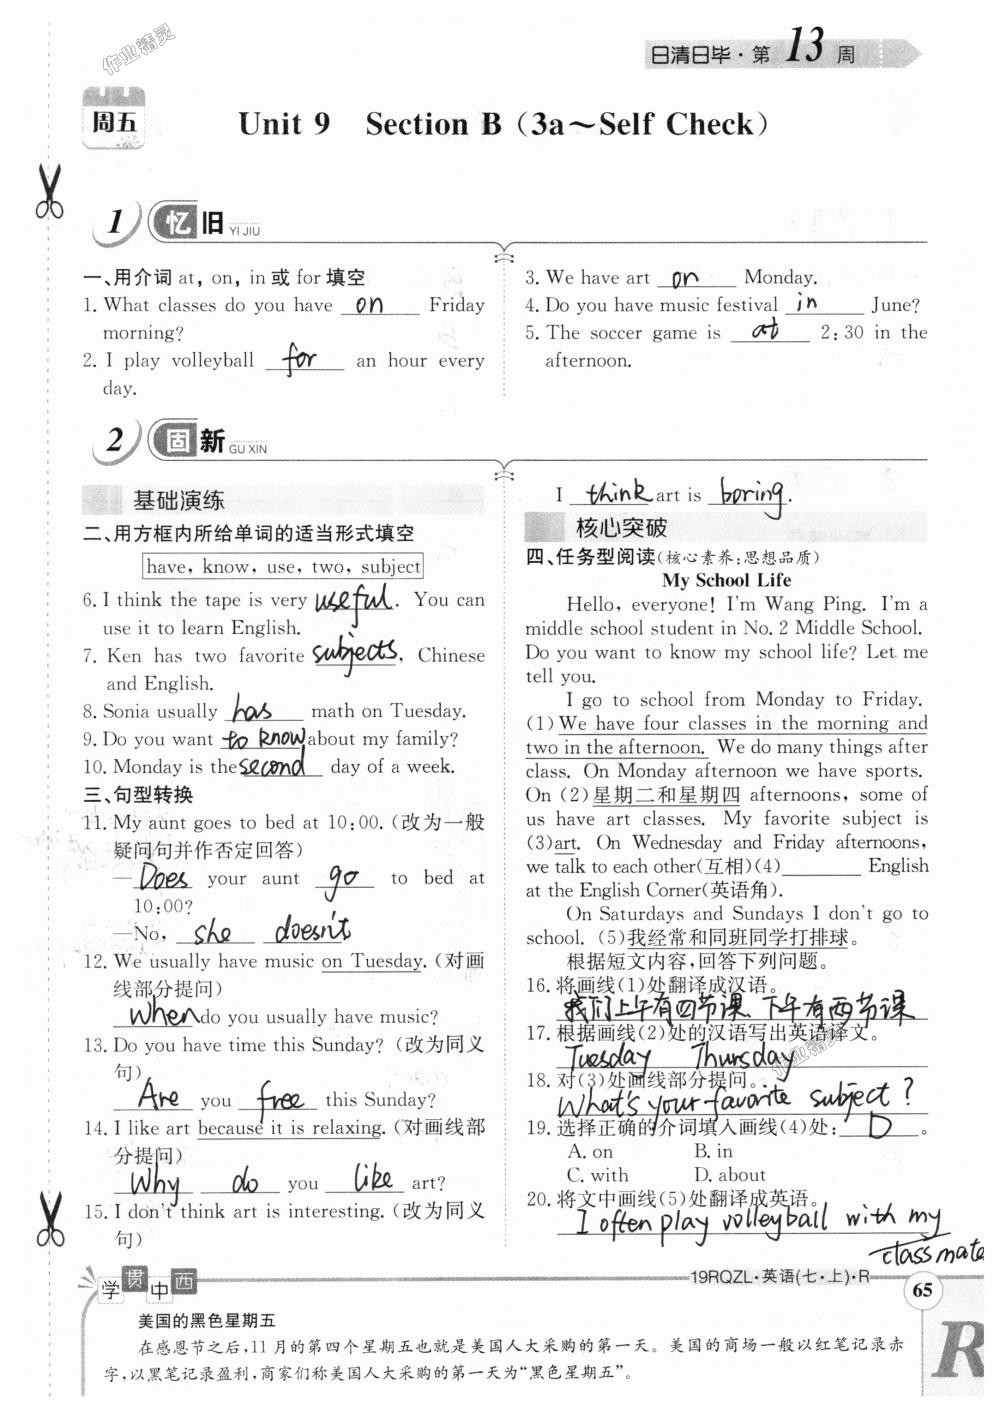 作业精灵
日清日毕·第 13 周
周五
Unit 9 Section B (3a~Self Check)
1 忆旧 YI JIU
一、用介词 at, on, in 或 for 填空
1. What classes do you have on Friday
morning?
2. I play volleyball for an hour every
day.
3. We have art on Monday.
4. Do you have music festival in June?
5. The soccer game is at 2:30 in the
afternoon.
2 固新 GU XIN
基础演练
二、用方框内所给单词的适当形式填空
have, know, use, two, subject
6. I think the tape is very useful. You can
use it to learn English.
7. Ken has two favorite subjects, Chinese
and English.
8. Sonia usually has math on Tuesday.
9. Do you want to know about my family?
10. Monday is the second day of a week.
三、句型转换
11. My aunt goes to bed at 10:00. (改为一般
疑问句并作否定回答)
—Does your aunt go to bed at
10:00?
—No, she doesn't
12. We usually have music on Tuesday. (对画
线部分提问)
When do you usually have music?
13. Do you have time this Sunday? (改为同义
句)
Are you free this Sunday?
14. I like art because it is relaxing. (对画线部
分提问)
Why do you like art?
15. I don't think art is interesting. (改为同义
句)
I think art is boring.
核心突破
四、任务型阅读(核心素养:思想品质)
My School Life
Hello, everyone! I'm Wang Ping. I'm a
middle school student in No. 2 Middle School.
Do you want to know my school life? Let me
tell you.
I go to school from Monday to Friday.
(1) We have four classes in the morning and
two in the afternoon. We do many things after
class. On Monday afternoon we have sports.
On (2) 星期二和星期四 afternoons, some of
us have art classes. My favorite subject is
(3) art. On Wednesday and Friday afternoons,
we talk to each other(互相)(4)________ English
at the English Corner(英语角).
On Saturdays and Sundays I don't go to
school. (5)我经常和同班同学打排球。
根据短文内容,回答下列问题。
16. 将画线(1)处翻译成汉语。
我们上午有四节课, 下午有两节课
17. 根据画线(2)处的汉语写出英语译文。
Tuesday Thursday
18. 对(3)处画线部分提问。
What's your favorite subject?
19. 选择正确的介词填入画线(4)处: D 。
A. on B. in
C. with D. about
20. 将文中画线(5)处翻译成英语。
I often play volleyball with my
classmate
作业精灵
19RQZL·英语(七·上)·R
65
学贯中西
美国的黑色星期五
在感恩节之后,11月的第四个星期五也就是美国人大采购的第一天。美国的商场一般以红笔记录赤
字,以黑笔记录盈利,商家们称美国人大采购的第一天为“黑色星期五”。
R